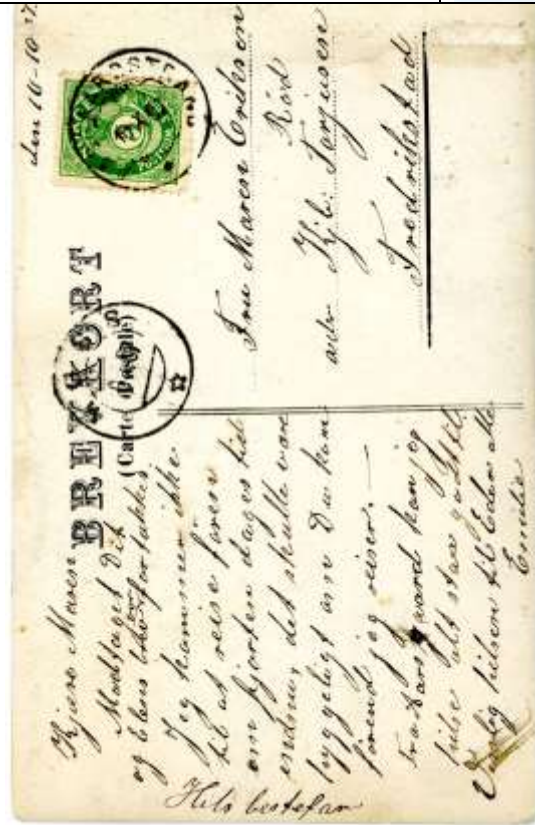 den 16-10-17.
BREVKORT
(Carte postale)
Kjære Maren
Modtaget Dit
og Elens brev for takkes
Jeg kommer ikke
til at reise føren
om fjorten dages tid
endnu, det skulle være
hyggeligt om Du kom
førend jeg reiser. —
Fra Borsgaard kan jeg
hilse alt staar godt til
Venlig hilsen til Eder alle
Emilie
Hils bestefar
Fru Maren Eriksen
Rød
adr Hjb. Torgersen
Fredrikstad